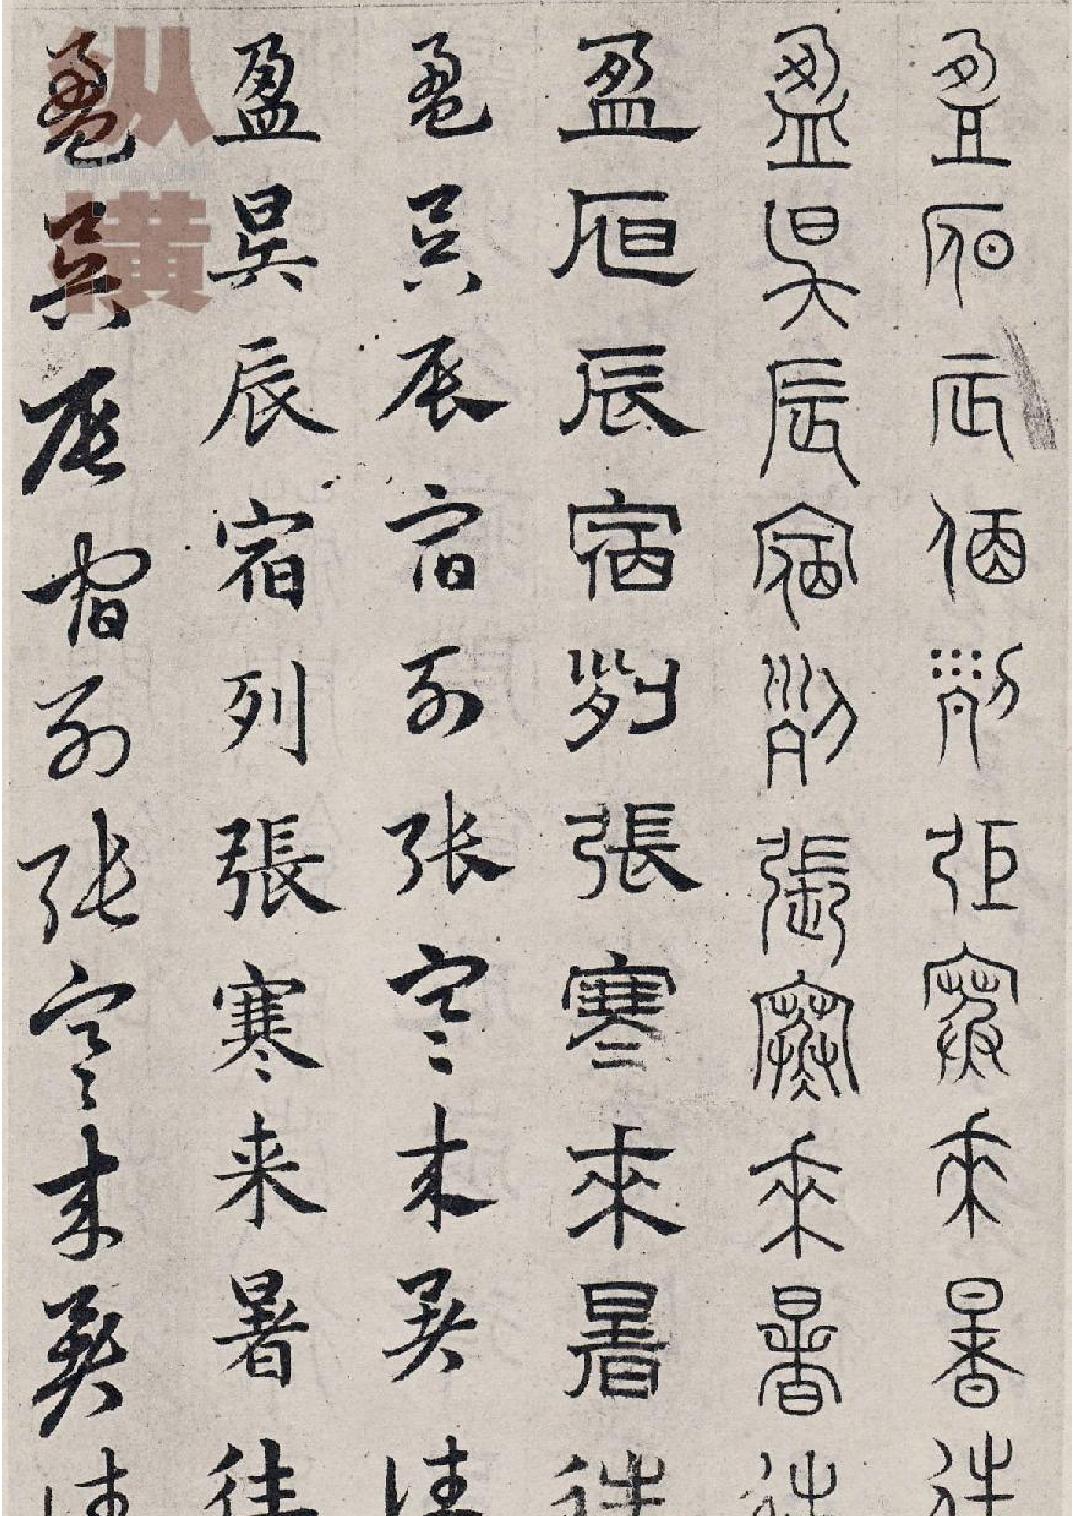 盈昃辰宿列張寒來暑往
盈昃辰宿列張寒來暑往
盈昃辰宿列張寒來暑往
盈昃辰宿列張寒來暑往
盈昃辰宿列張寒来暑往
盈昃辰宿列張寒來暑往
纵横